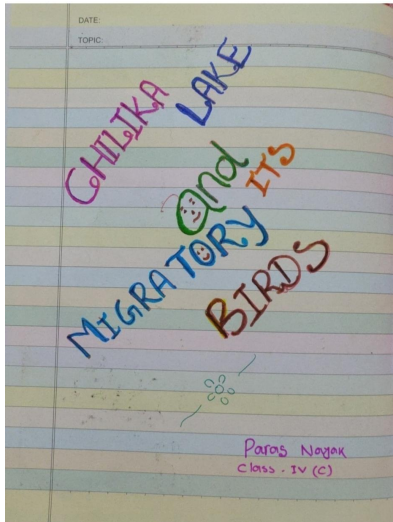 DATE:
TOPIC:
CHILIKA LAKE
And ITS
MIGRATORY
BIRDS
Paras Nayak
Class - IV (C)